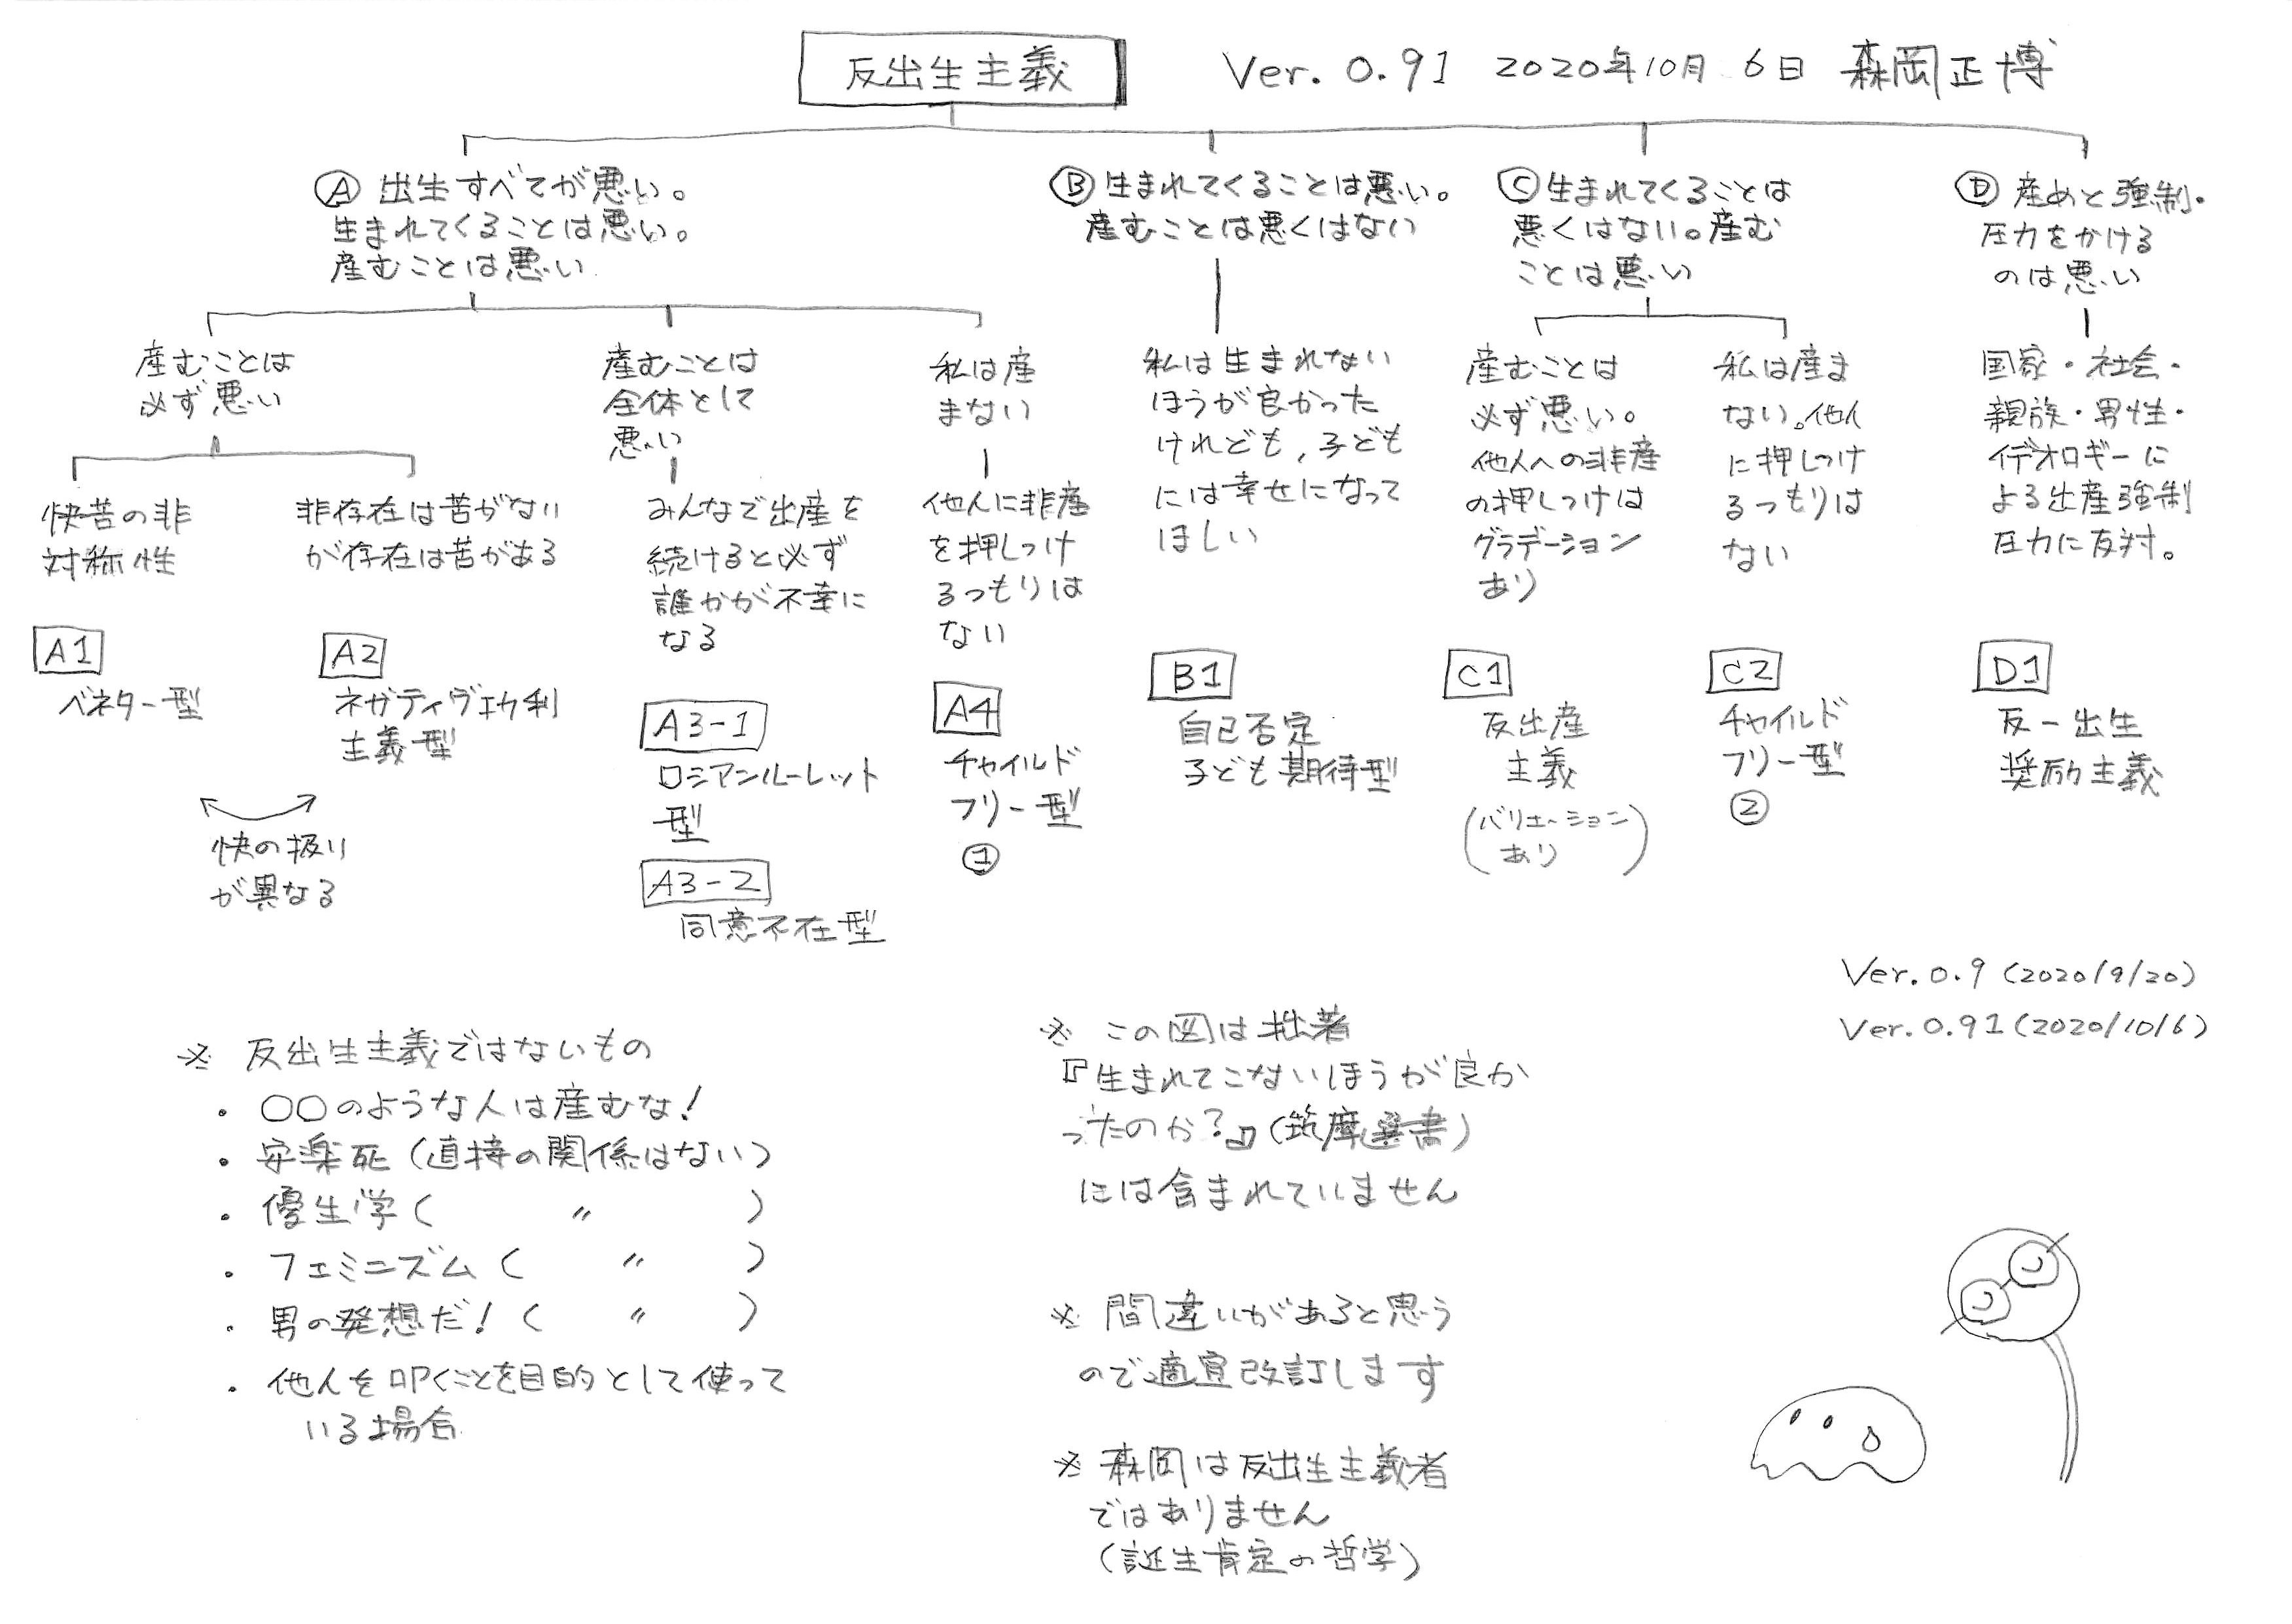 反出生主義
Ver. 0.91 2020年10月6日 森岡正博
Ⓐ 出生すべてが悪い。
生まれてくることは悪い。
産むことは悪い
Ⓑ 生まれてくることは悪い。
産むことは悪くはない
Ⓒ 生まれてくることは
悪くはない。産む
ことは悪い
Ⓓ 産めと強制・
圧力をかける
のは悪い
産むことは
必ず悪い
産むことは
全体として
悪い
私は産
まない
私は生まれない
ほうが良かった
けれども、子ども
には幸せになって
ほしい
産むことは
必ず悪い。
他人への非産
の押しつけは
グラデーション
あり
私は産ま
ない。他人
に押しつけ
るつもりは
ない
国家・社会・
親族・男性・
イデオロギーに
よる出産強制
圧力に反対。
快苦の非
対称性
非存在は苦がない
が存在は苦がある
みんなで出産を
続けると必ず
誰かが不幸に
なる
他人に非産
を押しつけ
るつもりは
ない
A1
ベネター型
A2
ネガティヴ功利
主義型
快の扱い
が異なる
A3-1
ロシアンルーレット
型
A3-2
同意不在型
A4
チャイルド
フリー型
①
B1
自己否定
子ども期待型
C1
反出産
主義
(バリエーション
あり)
C2
チャイルド
フリー型
②
D1
反-出生
奨励主義
Ver.0.9 (2020/9/20)
Ver.0.91 (2020/10/6)
※ 反出生主義ではないもの
・〇〇のような人は産むな!
・安楽死(直接の関係はない)
・優生学( 〃 )
・フェミニズム( 〃 )
・男の発想だ!( 〃 )
・他人を叩くことを目的として使って
いる場合
※ この図は拙著
『生まれてこないほうが良か
ったのか?』(筑摩選書)
には含まれていません
※ 間違いがあると思う
ので適宜改訂します
※ 森岡は反出生主義者
ではありません
(誕生肯定の哲学)